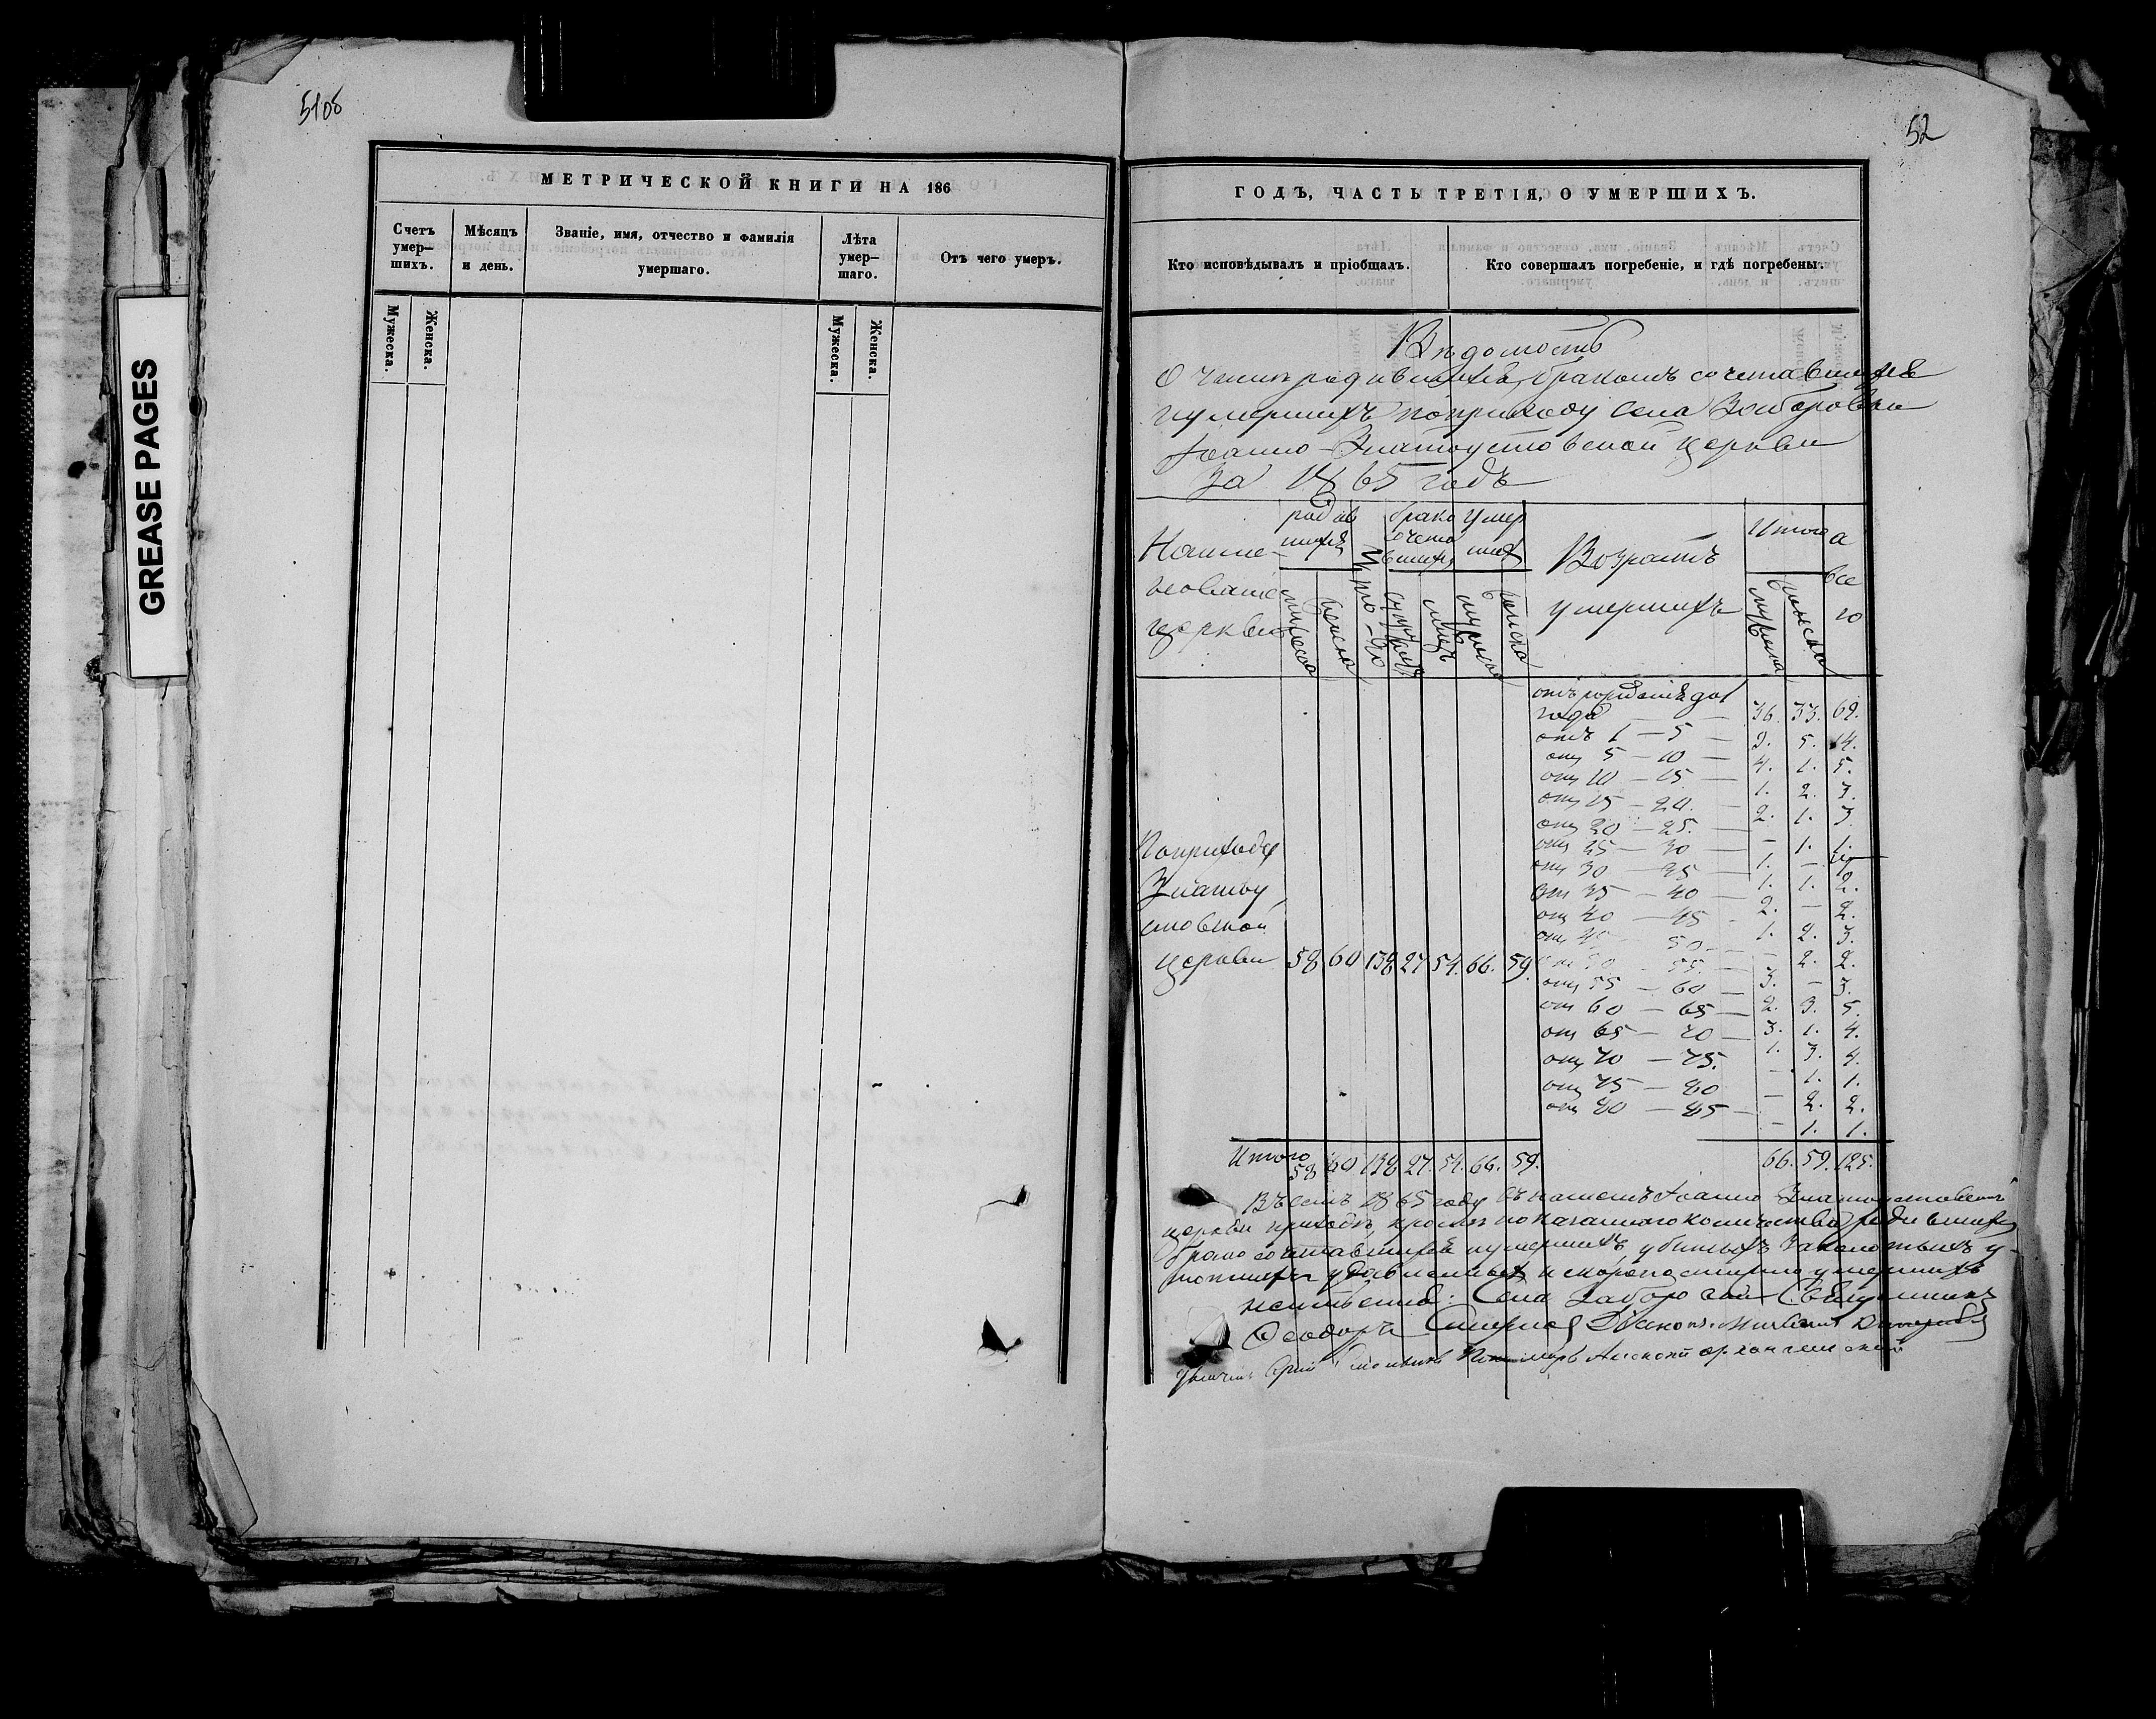 51об
МЕТРИЧЕСКОЙ КНИГИ НА 186
Счетъ умер–шихъ.
Мѣсяцъ и день.
Званіе, имя, отчество и фамилія умершаго.
Лѣта умер–шаго.
Отъ чего умеръ.
Мужеска.
Женска.
Мужеска.
Женска.
GREASE PAGES
52
ГОДЪ, ЧАСТЬ ТРЕТІЯ, О УМЕРШИХЪ.
Кто исповѣдывалъ и пріобщалъ.
Кто совершалъ погребеніе, и гдѣ погребены.
Вѣдомость
О числѣ родившихся, бракомъ сочетавшихся
и умершихъ по приходу села
Іоанно-Златоустовской церкви
За 1865 годъ
Наиме–нованіе церкви
родив шихся
Итого
брако сочета вшихся
умер шихъ
Возрастъ умершихъ
Итого
а все го
мужеска
женска
мужеска
женска
мужеска
женска
отъ рожденія до 1
года — — 36. 33. 69.
отъ 1 — 5 — 9. 5. 14.
отъ 5 — 10 — 4. 1. 5.
отъ 10 — 15 — 1. 2. 3.
отъ 15 — 20. — 2. 1. 3.
отъ 20 — 25. — – 1. 1.
отъ 25 — 30 — 1. –
отъ 30 — 35 — 1. 1. 2.
отъ 35 — 40 — 2. – 2.
отъ 40 — 45 - 1. 2. 3.
отъ 45 50. — – 2. 2.
отъ 50 - 55. — 3. – 3.
отъ 55 — 60 — 2. 3. 5.
отъ 60 — 65 — 3. 1. 4.
отъ 65 — 70 — 1. 3. 4.
отъ 70 — 75. – 1. 1.
отъ 75 — 80 – 2. 2.
отъ 80 — 85 — – 1. 1.
По приходу
Златоу
стовской
церкви 58 60 138 27 54. 66. 59.
Итого 58 60 138 27. 54. 66. 59. 66. 59. 125.
Въ семъ 1865 году въ нашемъ Іоанно Златоустовской
церкви приходѣ, кромѣ показаннаго количества родившихся
брако сочетавшихся и умершихъ, убитыхъ у-
топшихъ удавленныхъ и скоропостижно умершихъ
Села Священникъ
Ѳеодоръ Діаконъ
Пономарь Архангельскій